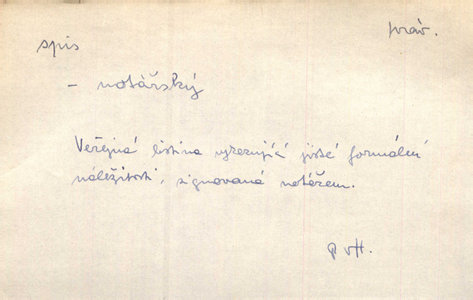 spis práv.
- notářský
Veřejná listina vykazující jisté formální
náležitosti, signovaná notářem.